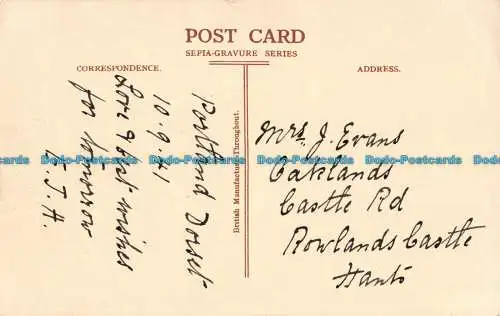 POST CARD
SEPIA-GRAVURE SERIES
CORRESPONDENCE.
ADDRESS.
Portland Dorset
10.9.41
Love & best wishes
for tomorrow
E.J.H.
British Manufacture Throughout.
Mrs. J. Evans
Oaklands
Castle Rd
Rowlands Castle
Hants
Dodo-Postcards Dodo-Postcards Dodo-Postcards Dodo-Postcards Dodo-Postcards Dodo-Postcards